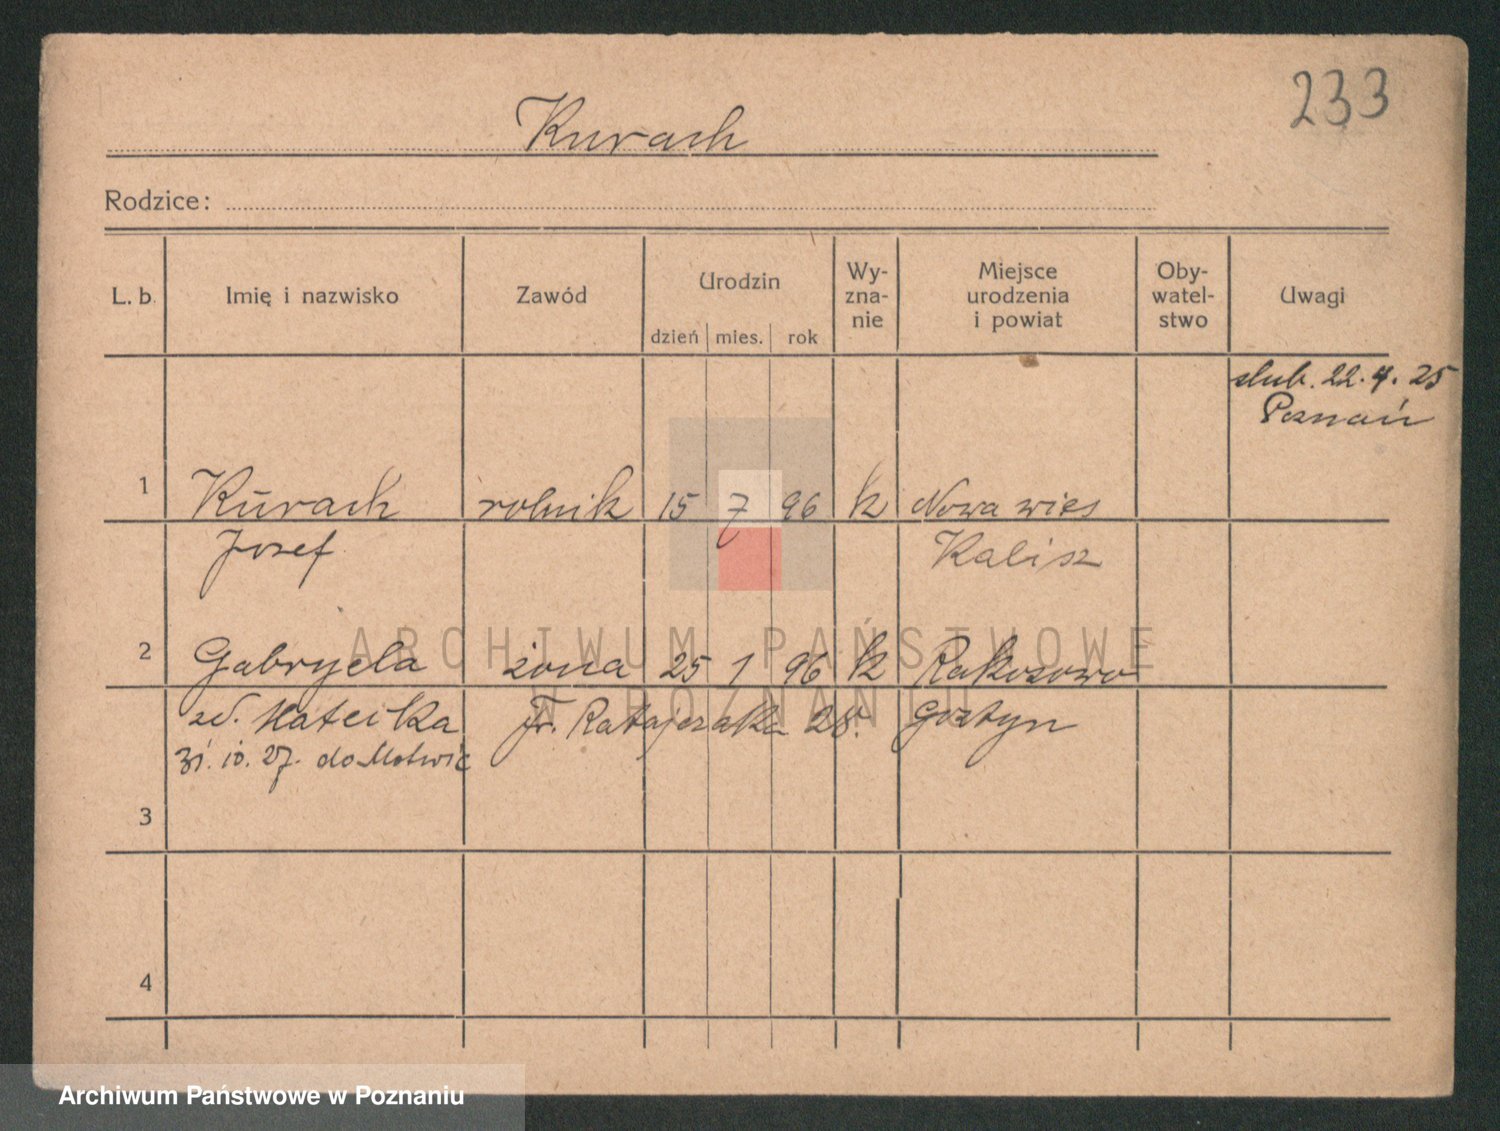 233
Kurach
Rodzice:
L. b. Imię i nazwisko Zawód Urodzin dzień mies. rok Wy-zna-nie Miejsce urodzenia i powiat Oby-watel-stwo Uwagi
ślub. 22. 4. 25
Poznań
1 Kurach rolnik 15 7 96 k Nowa wies
Josef Kalisz
2 Gabryela żona 25 1 96 k Rakosowo
zd. Fr. Ratajczaka 28. Gostyn
31. 10. 27. do
3
4
ARCHIWUM PAŃSTWOWE
W POZNANIU
Archiwum Państwowe w Poznaniu